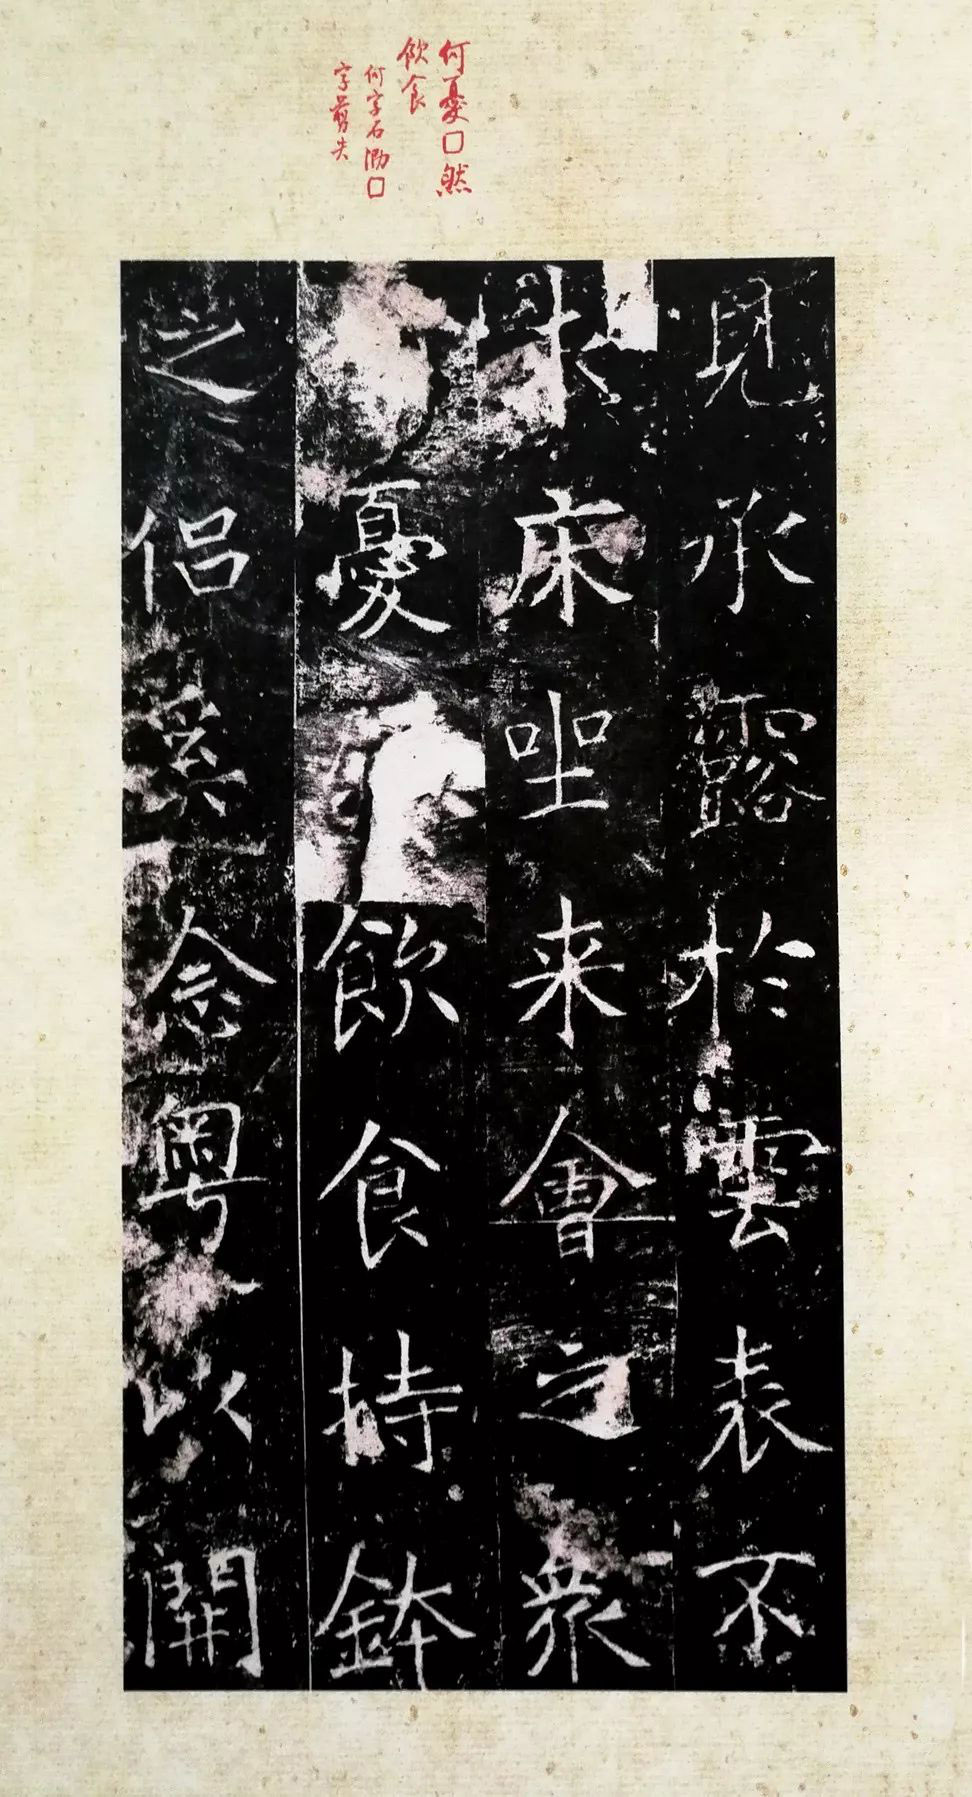 何憂□然
飲食
何字石泐□
字剪失
見承露於雲表不
求床坐来會之衆
憂飲食持鉢
之侣奚念粤以開